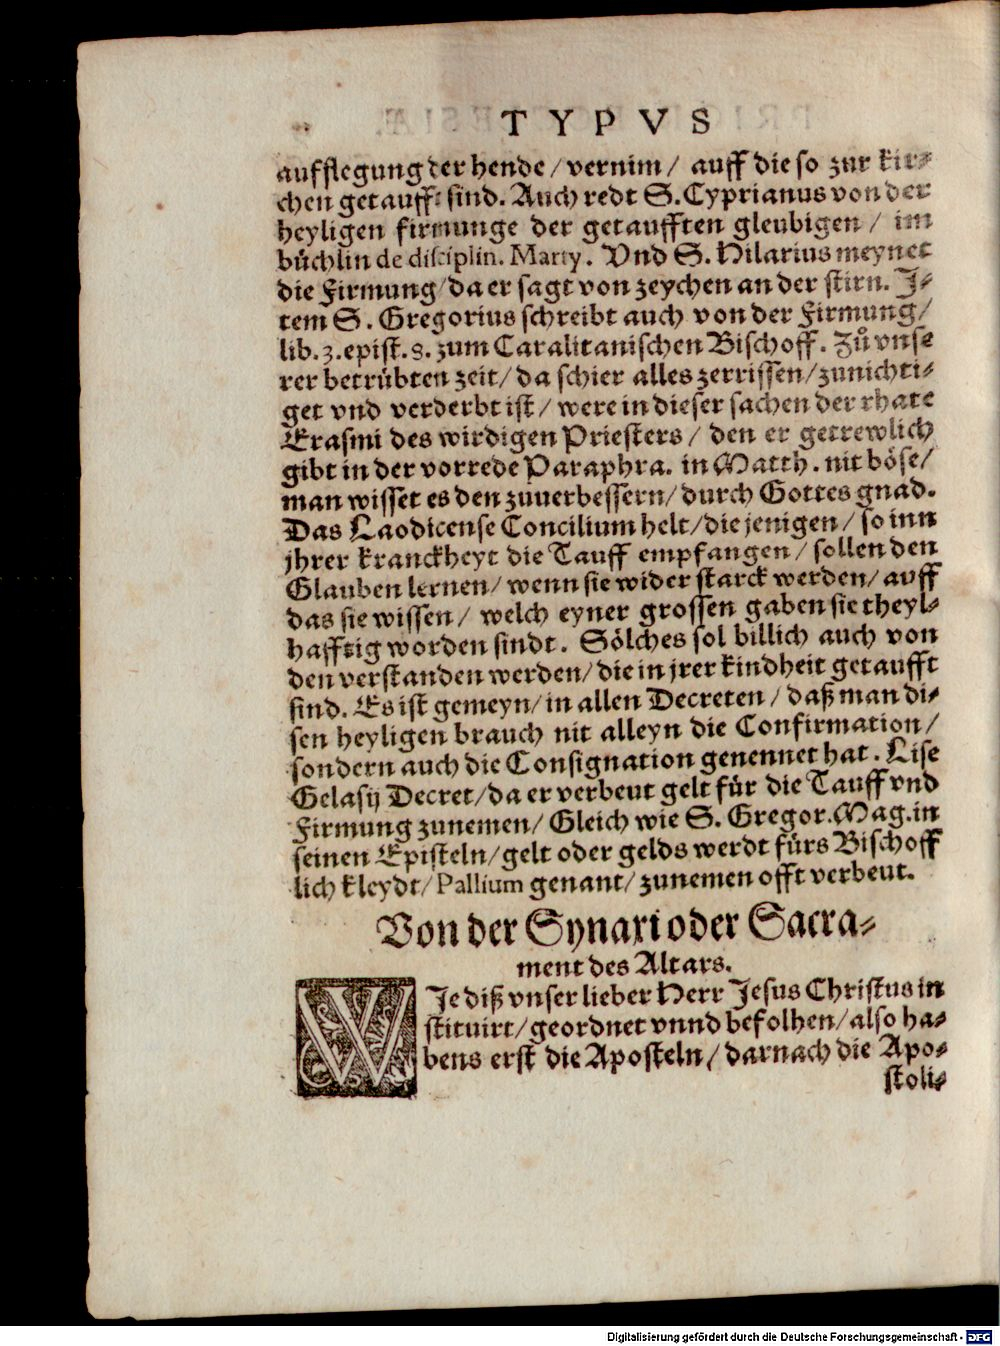 TYPVS
aufflegung der hende / vernim / auff die so zur kir-
chen getaufft sind. Auch redt S. Cyprianus von der
heyligen firmunge der getaufften gleubigen / im
büchlin de disciplin. Marty. Vnd S. Hilarius meynet
die Firmung / da er sagt von zeychen an der stirn. J-
tem S. Gregorius schreibt auch von der Firmung /
lib. 3. epist. 8. zum Caralitanischen Bischoff. Zů vnse
rer betrübten zeit / da schier alles zerrissen / zunichti-
get vnd verderbt ist / were in dieser sachen der rhate
Erasmi des wirdigen Priesters / den er getrewlich
gibt in der vorrede Paraphra. in Matth. nit böse /
man wisset es den zuuerbessern / durch Gottes gnad.
Das Laodicense Concilium helt / die jenigen / so inn
jhrer kranckheyt die Tauff empfangen / sollen den
Glauben lernen / wenn sie wider starck werden / auff
das sie wissen / welch eyner grossen gaben sie theyl-
hafftig worden sindt. Sölches sol billich auch von
den verstanden werden / die in jrer kindheit getaufft
sind. Es ist gemeyn / in allen Decreten / daß man di-
sen heyligen brauch nit alleyn die Confirmation /
sondern auch die Consignation genennet hat. Lise
Gelasij Decret / da er verbeut gelt für die Tauff vnd
Firmung zunemen / Gleich wie S. Gregor. Mag. in
seinen Episteln / gelt oder gelds werdt fürs Bischoff
lich kleydt / Pallium genant / zunemen offt verbeut.
Von der Synaxi oder Sacra-
ment des Altars.
WJe diß vnser lieber Herr Jesus Christus in
stituirt / geordnet vnnd befolhen / also ha-
bens erst die Aposteln / darnach die Apo-
stoli-
Digitalisierung gefördert durch die Deutsche Forschungsgemeinschaft - DFG